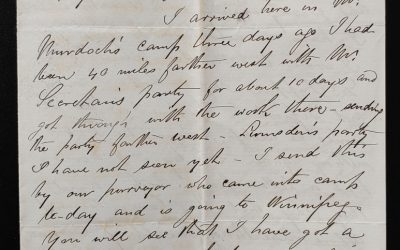 I arrived here in Mr.
Murdoch's camp three days ago I had
been 40 miles farther west with Mr.
Secretan's party for about 10 days and
got through with the work there - sending
the party farther west - party
I have not seen yet - I send this
by our purveyor who came into camp
to-day and is going to Winnipeg.
You will see that I have got a